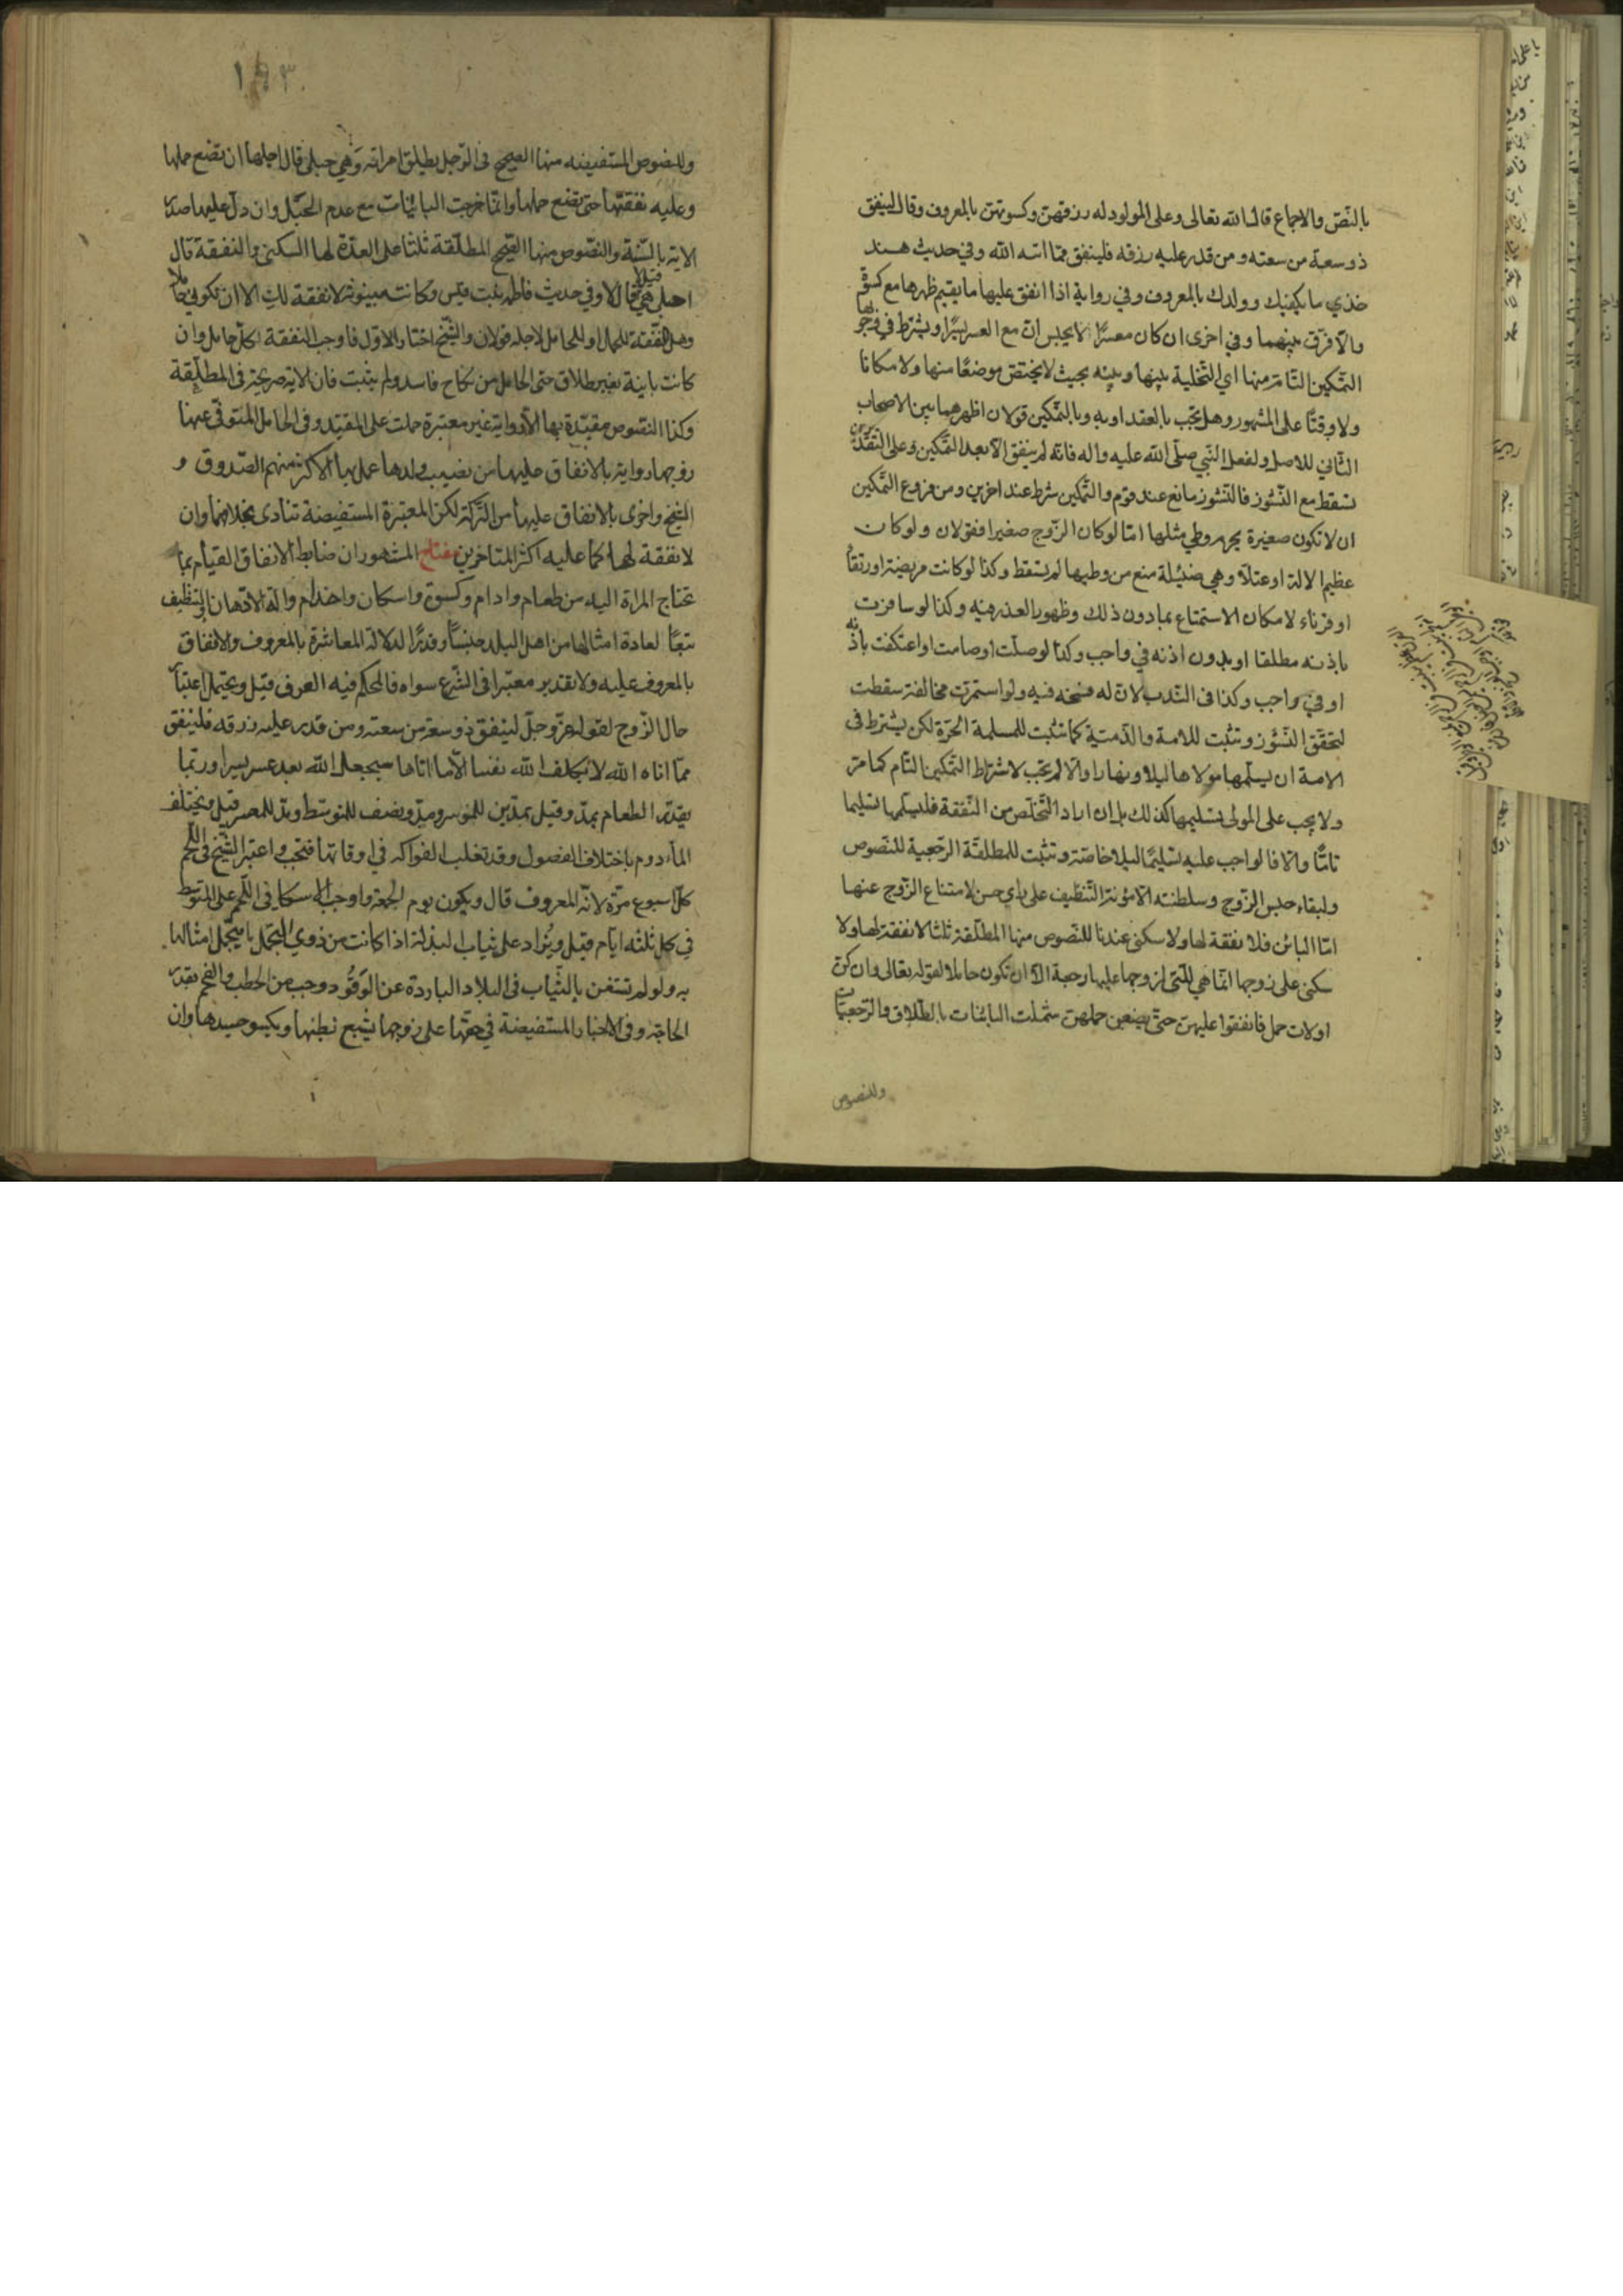 بالنّص والاجماع قال الله تعالى وعلى المولود له رزقهن وكسوتهن بالمعروف وقال لينفق
ذو سعة من سعته ومن قدر عليه رزقه فلينفق ممّا اتيه الله وفي حديث هند
خذي ما يكفيك وولدك بالمعروف وفي رواية اذا انفق عليها ما يقيم ظهرها مع كسوة
والّا فرّق بينهما وفي اخرى ان كان معسرًا لا يحبس انّ مع العسر يسرًا ويشترط في وجوبها
التمكين التام منها اي التخلية بينها وبينه بحيث لا يختص موضعًا منها ولا مكانا
ولا وقتًا على المشهور وهل تجب بالعقد او به وبالتمكين قولان اظهرهما بين الاصحاب
الثاني للاصل ولفعل النّبي صلّى الله عليه واله فانّه لم ينفق الّا بعد التمكين وعلى التقديرين
تسقط مع النّشوز فالنّشوز مانع عند قوم والتمكين شرط عند اخرين ومن فروع التمكين
ان لا تكون صغيرة يحرم وطي مثلها امّا لو كان الزّوج صغيرا فقولان ولو كان
عظيم الالة او عتلاّ وهي ضئيلة منع من وطيها لم تسقط وكذا لو كانت مريضة او رتقاء
او قرناء لامكان الاستمتاع بما دون ذلك وظهور العذر منه وكذا لو سافرت
باذنه مطلقا او بدون اذنه في واجب وكذا لو صلّت او صامت او اعتكفت باذنه
او في واجب وكذا في النّدب لانّ له فسخه فيه ولو استمرّت مخالفة سقطت
لتحقّق النّشوز وتثبت للامة والذّمّية كما تثبت للمسلمة الحرّة لكن يشترط في
الامة ان يسلّمها مولاها ليلا ونهارا والّا لم تجب لاشتراط التمكين التّام كما مرّ
ولا يجب على المولى تسليمها كذلك بل ان اراد التّخلّص من النّفقة فليسلّمها تسليما
تامًّا والّا فالواجب عليه تسليمًا ليلا خاصّة وتثبت للمطلقّة الرّجعية للنّصوص
ولبقاء حبس الزّوج وسلطنته الّا مؤنة التّنظيف على راي حسن لامتناع الزّوج عنها
امّا البائن فلا نفقة لها ولا سكنى عندنا للنّصوص منها المطلّقة ثلثا لا نفقة لها ولا
سكنى على زوجها انّما هي للّتي لزوجها عليها رجعة الّا ان تكون حاملا لقوله تعالى وان كنّ
اولات حمل فانفقوا عليهنّ حتّى يضعن حملهنّ شملت البائنات بالطّلاق والرّجعيّات
وللنصوص
١٥٣
وللنصوص المستفيضه منها الصحيح في الرّجل يطلق امراته وهي حبلى قال اجلها ان تضع حملها
وعليه نفقتها حتى تضع حملها وانّما خرجت البائنات مع عدم الحبل وان دلّ عليها صدر
الاية بالسّنّة والنّصوص منها الصّحيح المطلّقة ثلثا على العدّة لها السكنى والنفقة قال
احبلى هي قيل لا قال لا وفي حديث فاطمة بنت قيس وكانت مبينونة لا نفقة لك الا ان تكوني حاملا
وهل النّفقة للحمل او للحامل لاجله قولان والشّيخ اختار الاوّل فاوجب النفقة لكلّ حامل وان
كانت باينة بغير طلاق حتى الحامل من نكاح فاسد ولم يثبت فان الاية صريحة في المطلّقة
وكذا النصّوص مقيّدة بها الّا رواية غير معتبرة حملت على المقيّد وفي الحامل المتوفّى عنها
زوجها رواية بالانفاق عليها من نصيب ولدها عمل بها الاكثر منهم الصّدوق و
الشيخ واخرى بالانفاق عليها من التّركة لكن المعتبرة المستفيضة تنادى بخلافهما وان
لا نفقة لها كما عليه اكثر المتاخرين مفتاح المشهور ان ضابط الانفاق القيام بما
تحتاج المراة اليه من طعام وادام وكسوة واسكان واخدام والة الادّهان والتنظيف
تبعًا لعادة امثالها من اهل البلد جنسًا وقدرًا لدلالة المعاشرة بالمعروف والانفاق
بالمعروف عليه ولا تقدير معتبرا في الشّرع سواه فالمحكم فيه العرف قيل ويحتمل اعتبار
حال الزّوج لقوله عزّ وجلّ لينفق ذو سعة من سعته ومن قدر عليه رزقه فلينفق
ممّا اتاه الله لا يكلف الله نفسا الّا ما اتاها سيجعل الله بعد عسر يسرا وربّما
يقدّر الطعام بمدّ وقيل بمدّين للموسر ومدّ ونصف للمتوسّط ومدّ للمعسر قيل ويختلف
المأدوم باختلاف الفصول وقد تغلب الفواكه في اوقاتها فتجب واعتبر الشيخ في اللّحم
كلّ اسبوع مرّة لانّه المعروف قال ويكون يوم الجمعة واوجب الاسكافي اللّحم على المتوسّط
في كلّ ثلثه ايّام قيل ويزاد على ثياب البذلة اذا كانت من ذوي التجمّل ما يتجمّل امثالها
به ولو لم تستغن بالثّياب في البلاد الباردة عن الوَقُود وجب من الحطب والفحم بقدر
الحاجة وفي الاخبار المستفيضة في حقّها على زوجها يشبع بطنها ويكسو جسدها وان